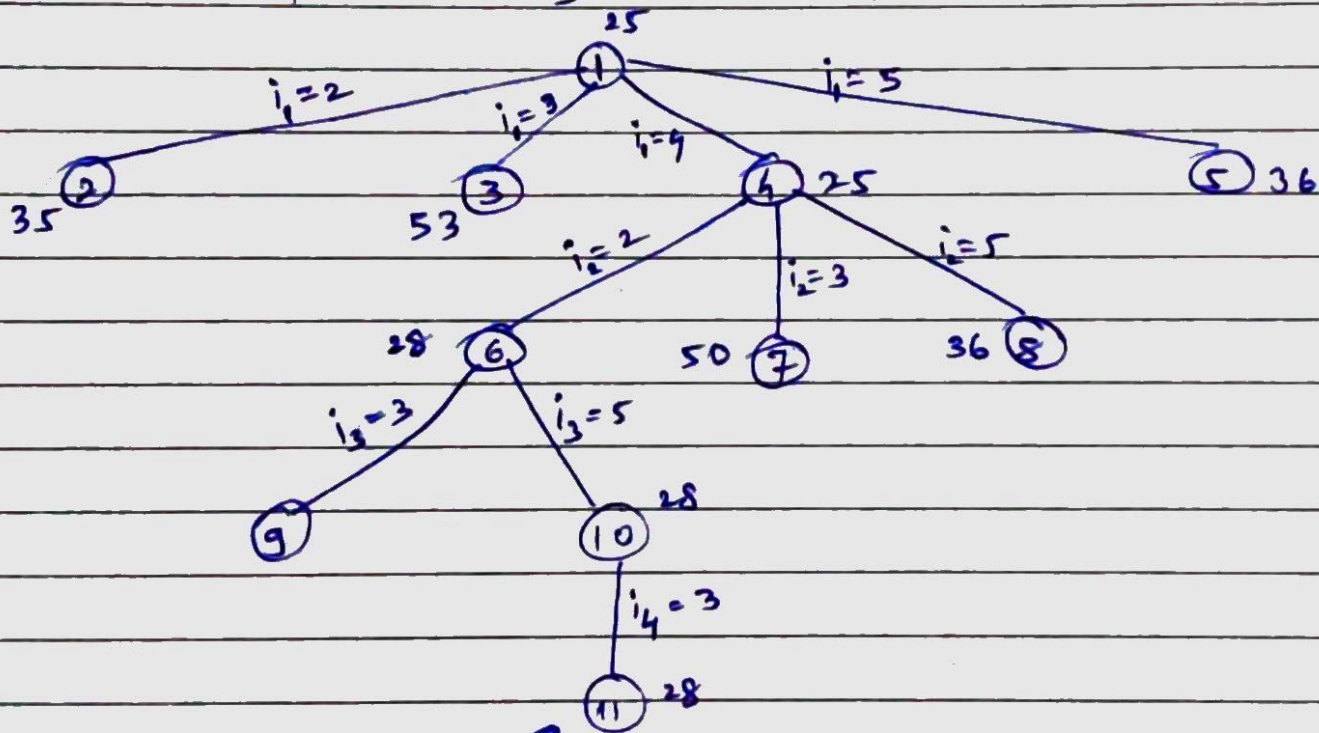 25
1
i₁=2
i₁=3
i₁=4
i₁=5
35 2
53 3
4 25
5 36
i₂=2
i₂=3
i₂=5
28 6
50 7
36 8
i₃=3
i₃=5
9
10 28
i₄=3
11 28